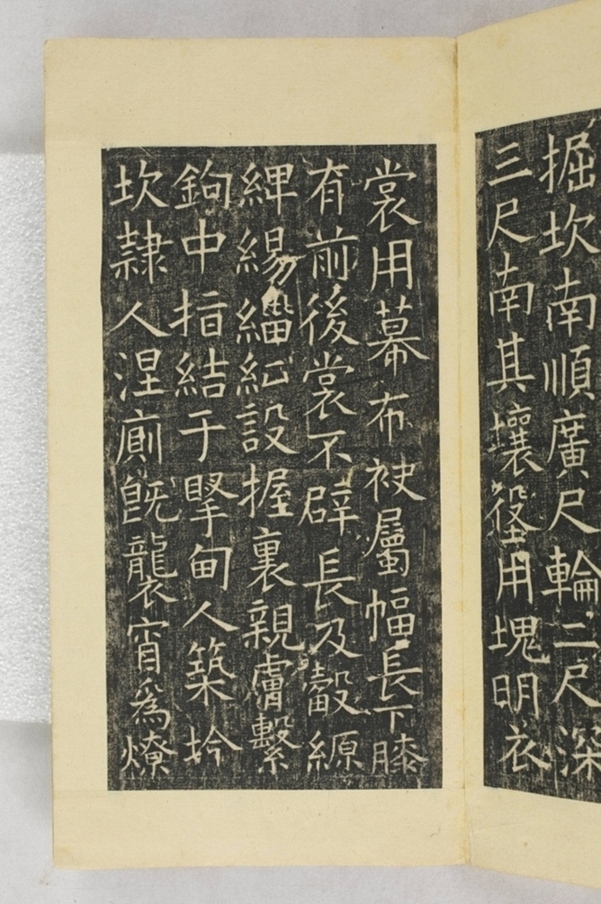 掘坎南順廣尺輪二尺深
三尺南其壤垼用塊明衣
裳用幕布袂屬幅長下膝
有前後裳不辟長及觳縓
綼緆緇純設握裏親膚繫
鉤中指結于掔甸人築坅
坎隸人涅廁既襲宵爲燎